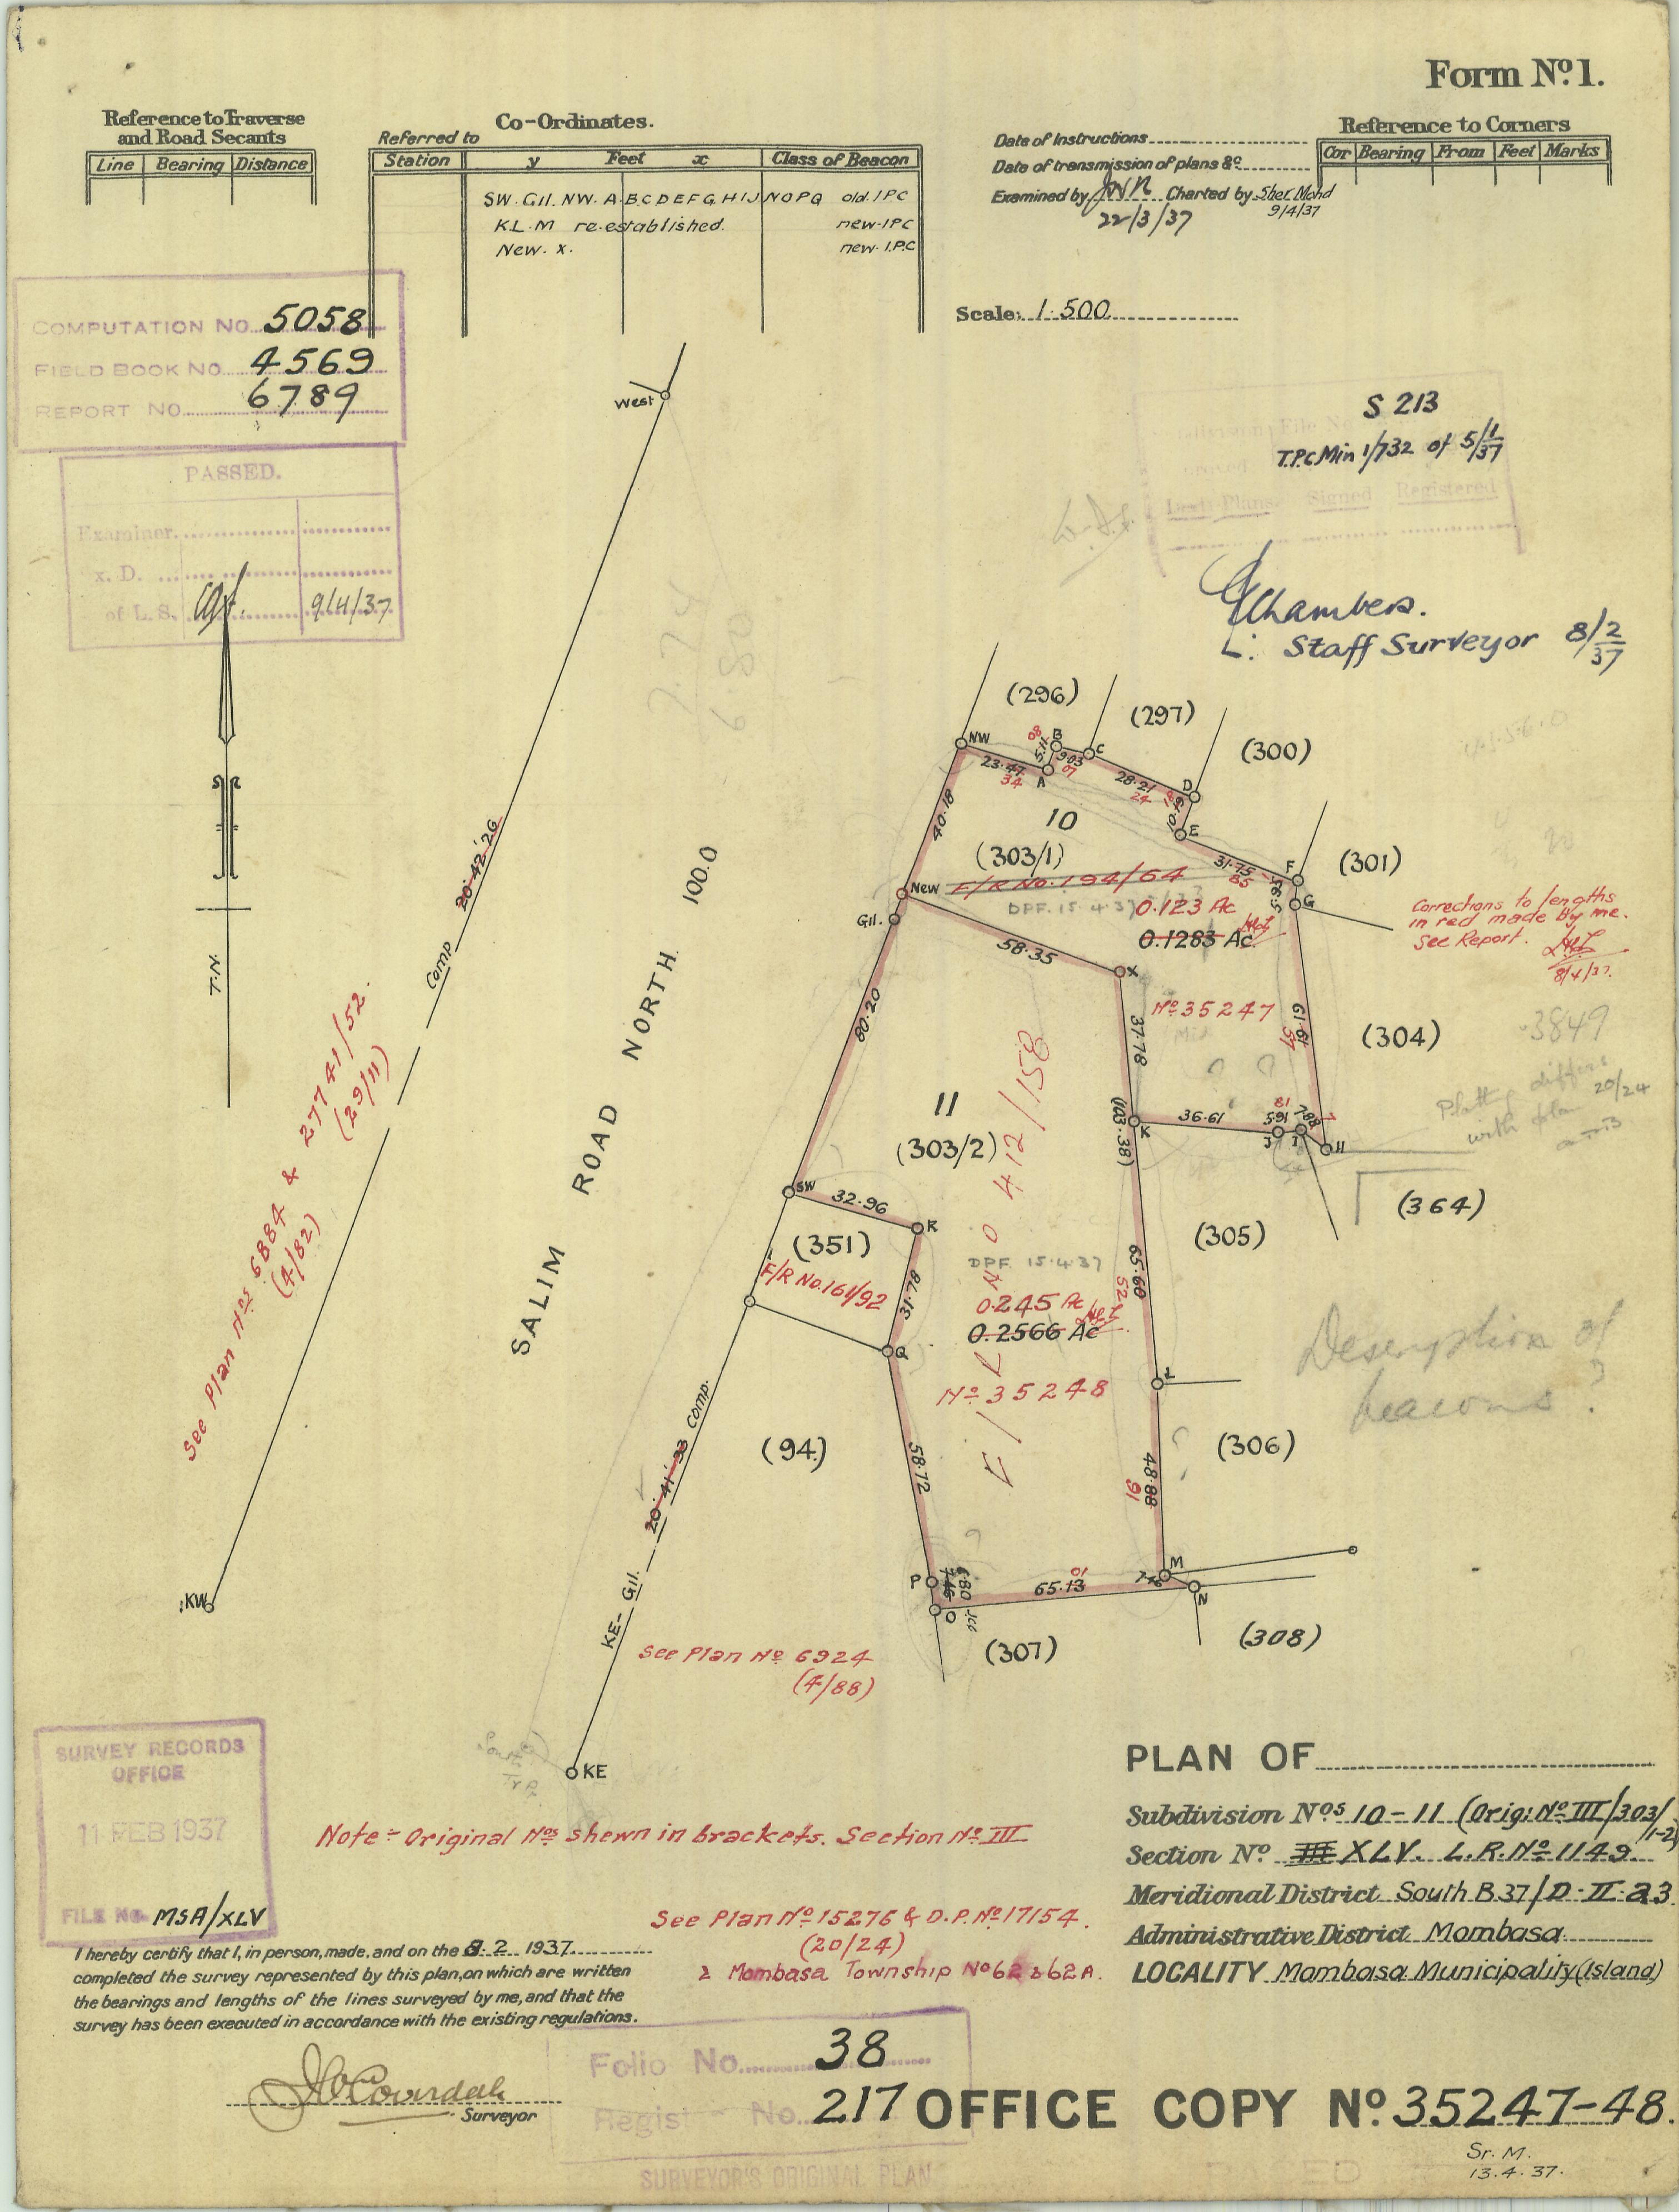 Form Nº 1.
Reference to Traverse
and Road Secants
Line Bearing Distance
Co-Ordinates.
Referred to
Station y Feet x Class of Beacon
SW. Gil. NW. A B C D E F G H I J N O P Q old. I P C
K. L. M re-established. new. I P C
New. x. new. I.P.C
Date of Instructions
Date of transmission of plans &c
Examined by Charted by Sher Mohd
22/3/37 9/4/37
Reference to Corners
Cor Bearing From Feet Marks
Scale: 1·500
COMPUTATION NO. 5058
FIELD BOOK NO. 4569
REPORT NO. 6789
PASSED.
Examiner.
x. D.
of L. S. 9/4/37
S 213
T.P.C Min 1/732 of 5/1/37
Signed Registered
Chambers.
Staff Surveyor 8/2/37
West
T.N.
20·42·26
Comp
See Plan Nos 6884 & 27741/52.
(4/82) (29/11)
KW
SALIM ROAD NORTH 100.0
(296)
(297)
(300)
(301)
(304)
(364)
(305)
(306)
(308)
(307)
(94)
NW
23·47
34
A
5·11
08
B
9·03
07
C
28·21
24
D
E
31·75
85
F
G
40·18
10
(303/1)
F/R No. 194/64
New
DPF. 15·4·37
0.123 Ac
0.1283 Ac
Gil.
58·35
X
Nº 35247
37·78
61·61
Corrections to lengths
in red made by me.
See Report.
8/4/37.
3849
Plotting differs
with plan 20/24
80·20
11
(303/2)
(103.38)
K
36·61
81
5·91
7·88
J
I
H
F/R No 412/158
SW
32·96
R
(351)
F/R No. 161/92
31·78
Q
DPF. 15·4·37
0.245 Ac
0.2566 Ac
Nº 35248
65·60
52
L
Description of
beacons?
58·72
48·88
91
20·41·33 Comp.
KE- Gil.
P
6·80
7·46
O
65·13
10
M
N
See Plan Nº 6924
(4/88)
KE
Note = Original Nos shewn in brackets. Section Nº III
SURVEY RECORDS
OFFICE
11 FEB 1937
FILE No. MSA/XLV
See Plan Nº 15276 & D.P. Nº 17154.
(20/24)
& Mombasa Township Nº 62 & 62A.
I hereby certify that I, in person, made, and on the 8. 2. 1937.
completed the survey represented by this plan, on which are written
the bearings and lengths of the lines surveyed by me, and that the
survey has been executed in accordance with the existing regulations.
Surveyor
PLAN OF
Subdivision Nos 10-11 (Orig: Nº III/303/1-2)
Section Nº III XLV. L.R. Nº 1149.
Meridional District South B 37/D-II-a3
Administrative District Mombasa
LOCALITY Mombasa Municipality (Island)
Folio No. 38
Regist No. 217
OFFICE COPY Nº 35247-48.
Sr. M.
13.4.37.
SURVEYOR'S ORIGINAL PLAN